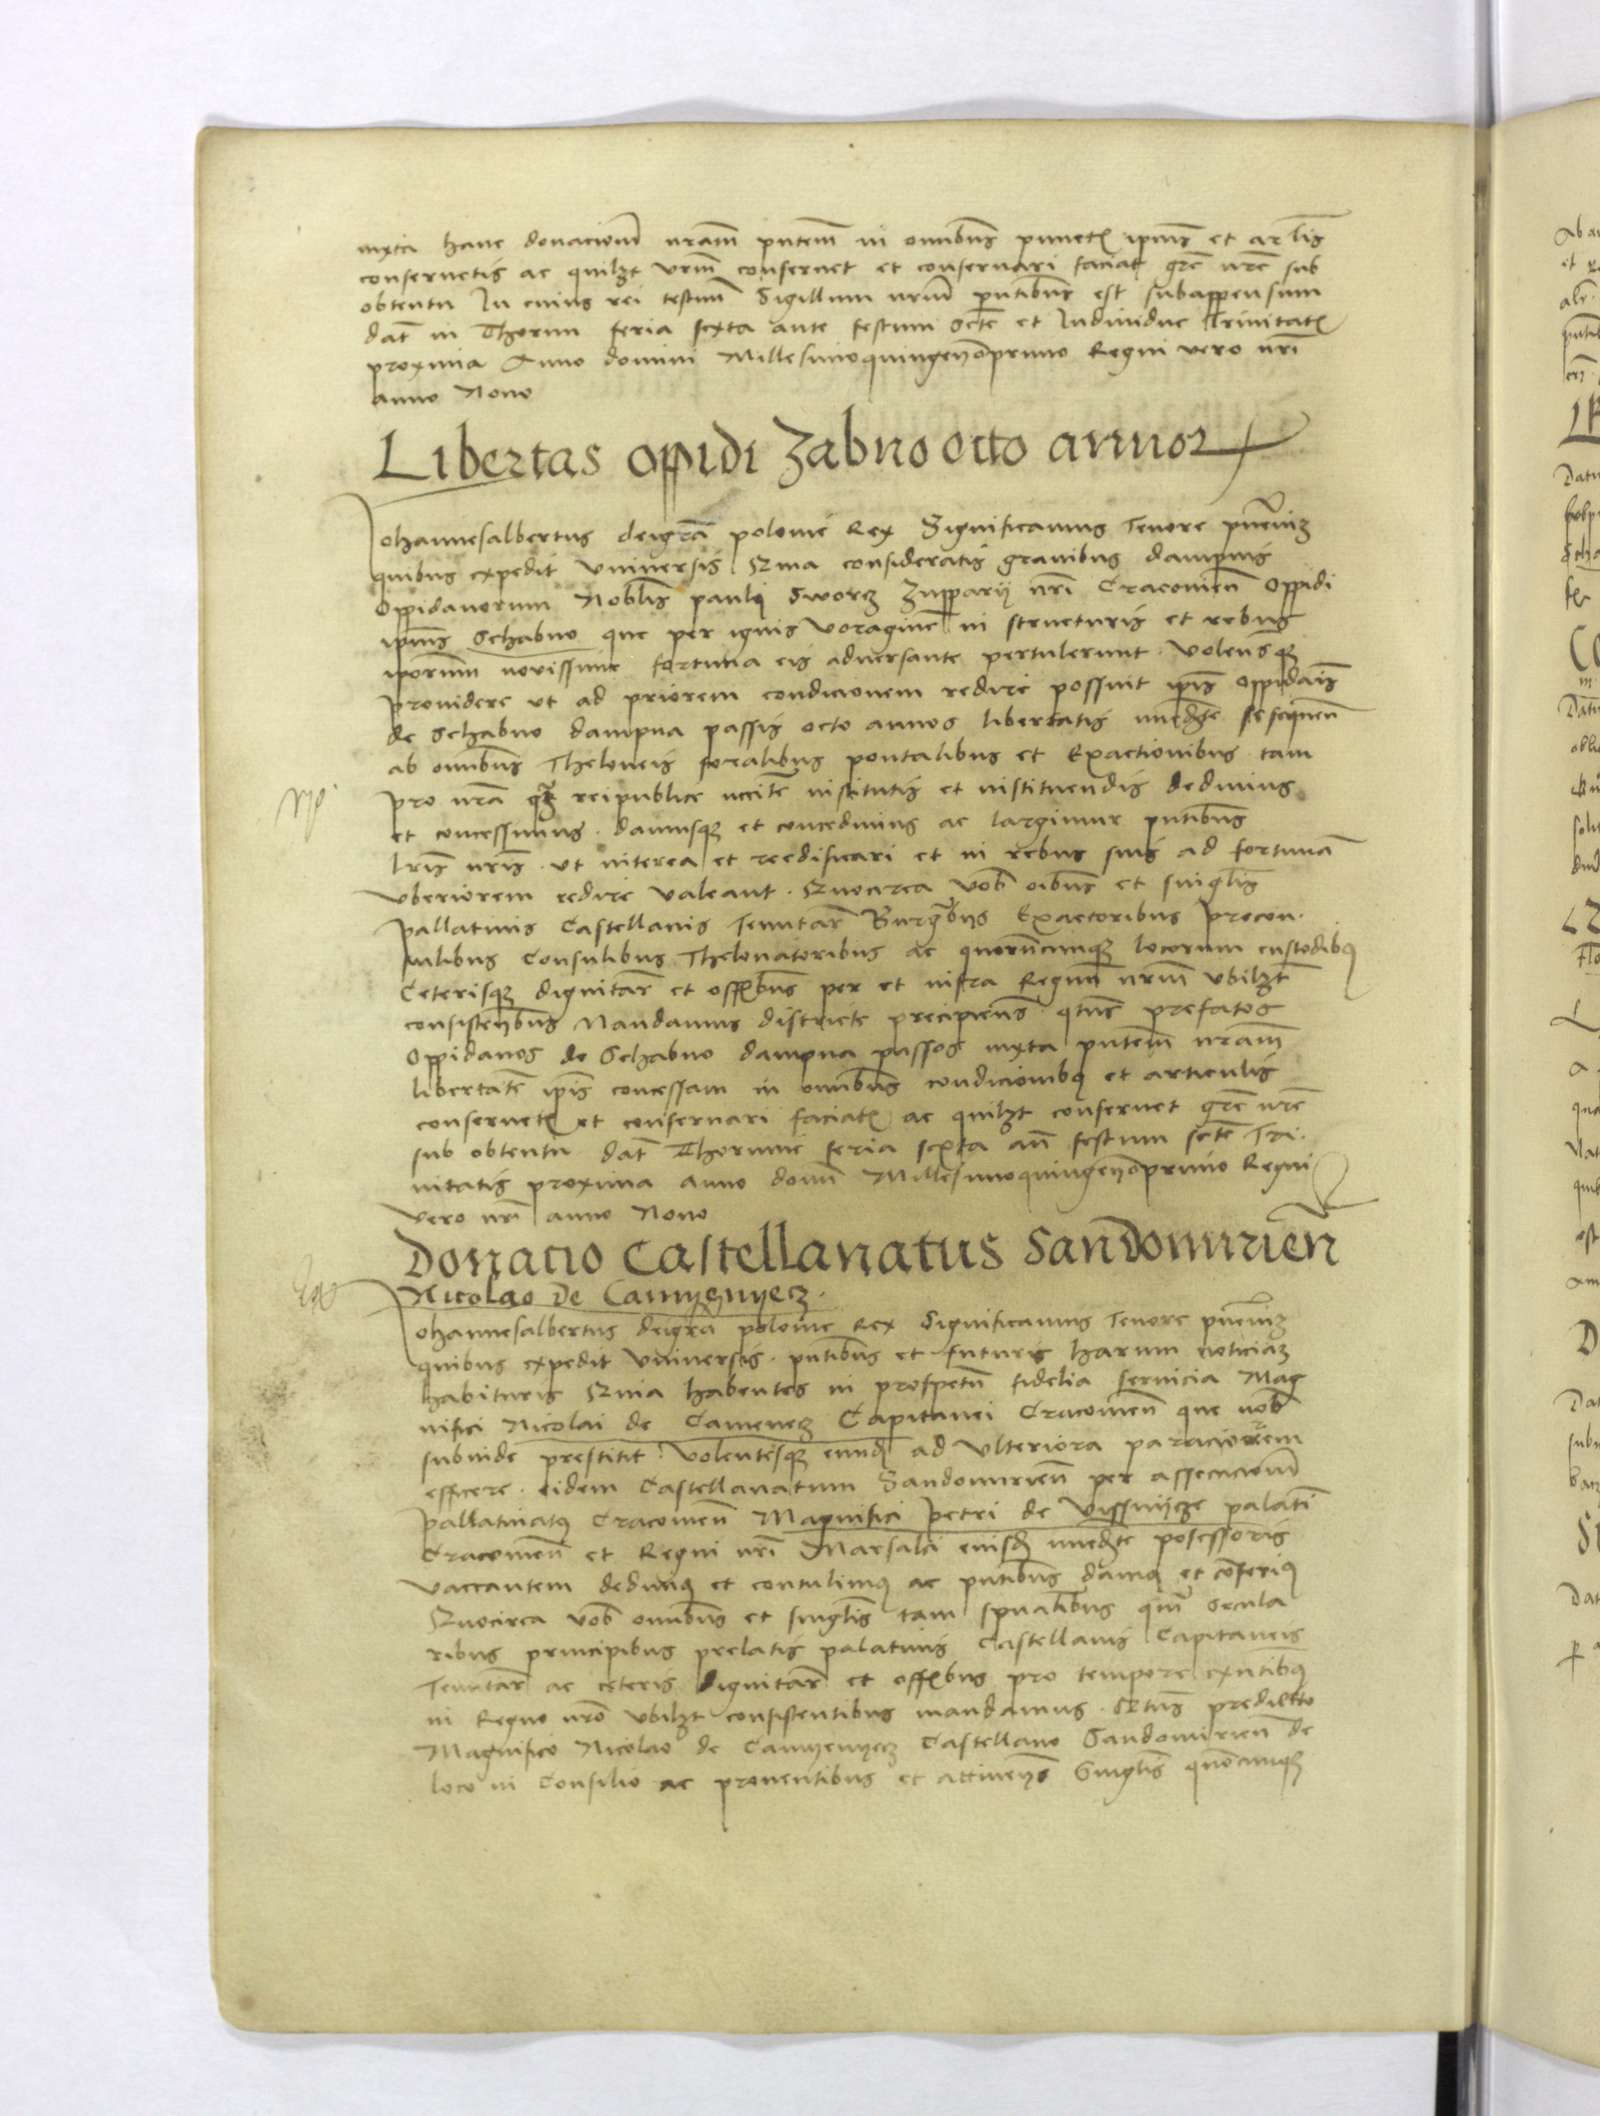 iuxta hanc donacionem nram pntem in omnibus punctis ipius et arlis
conservetis ac quilzt vrm conservet et conservari faciat gre nre sub
obtentu In cuius rei testim Sigillum nrum pntibus est subappensum
dat in Thorun feria sexta ante festum scte et Individue Trinitatis
proxima Anno domini Millesimoquingenoprimo Regni vero nri
anno Nono
Libertas oppidi Zabno octo annor
Johannesalbertus deigra polonie Rex Significamus Tenore pncium
quibus expedit Universis Quia consideratis gravibus dampnis
Oppidanorum Noblis pauli Sworcz Zupparij nri Cracovien Oppidi
ipius Schabno que per ignis voragine in structuris et rebus
ipsorum novissime fortuna eis adversante pertulerunt. Volensque
providere ut ad priorem condicionem redire possint ipis oppidais
de Schabno dampna passis octo annos libertatis immedte se sequen
ab omnibus Theloneis foralibus pontalibus et Exactionibus tam
pro nra qz reipublice nccite institutis et instituendis dedimus
et concessimus. damusque et concedimus ac largimur pntibus
lris nris. ut interea et reedificari et in rebus suis ad fortuna
uberiorem redire valeant. Quocirca vob oibus et singlis
pallatinis Castellanis Tenutar Burgrabys Exactoribus procon
sulibus Consulibus Thelonatoribus ac quoruncunque locorum custodibus
Ceterisque dignitar et offibus per et infra Regnu nrum ubilzt
consistenbus Mandamus districte precipiens qtus prefatos
Oppidanos de Schabno dampna passos iuxta pntem nram
libertate ipis concessam in omnibus condicionibus et articulis
conservetis et conservari faciatis ac quilzt conservet gre nre
sub obtentu dat Thorunie feria sexta an festum scte Tri
nitatis proxima anno domi Millesimoquingenoprimo Regni
vero nri anno Nono
Donacio Castellanatus Sandomirien
Nicolao De Camyenyecz.
Johannesalbertus deigra polonie Rex Significamus Tenore pncium
quibus expedit Universis. pntibus et futuris harum noticiam
habituris Quia habentes in prospectu fidelia servicia Mag
nifici Nicolai de Camenecz Capitanei Cracovien que nob
subinde prestitit. volentesque eund ad ulteriora paraciorem
efficere. eidem Castellanatum Sandomirien per assecucionem
pallatinatus Cracovien Magnifici petri de Vissnijcze palati
Cracovien et Regni nri Marsalci eiusd immedte possessoris
vaccantem dedimus et contulimus ac pntibus damus et conferimus
Quocirca vob omnibus et singlis tam spualibus qm secula
ribus principibus prelatis palatinis Castellanis Capitaneis
Tenutar ac ceteris dignitar et offibus pro tempore exntibus
in Regno nro ubilzt consistentibus mandamus. Qtus predicto
Magnifico Nicolao de Camyenyecz Castellano Sandomirien de
loco in Consilio ac proventibus et attinenys Singlis quocunque